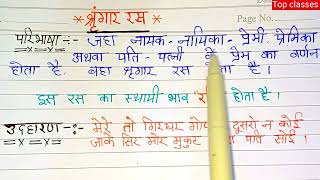 Top classes
* श्रृंगार रस *
Page No.
परिभाषा :- जहां नायक - नायिका - प्रेमी प्रेमिका
अथवा पति - पत्नी के प्रेम का वर्णन
होता है. वहा श्रृंगार रस होता है ।
इस रस का स्थायी भाव "रति होता है।
उदाहरण -:- मेरे तो गिरधर दूसरो न कोई
जाके सिर मोर मुकुट पति सोई ।